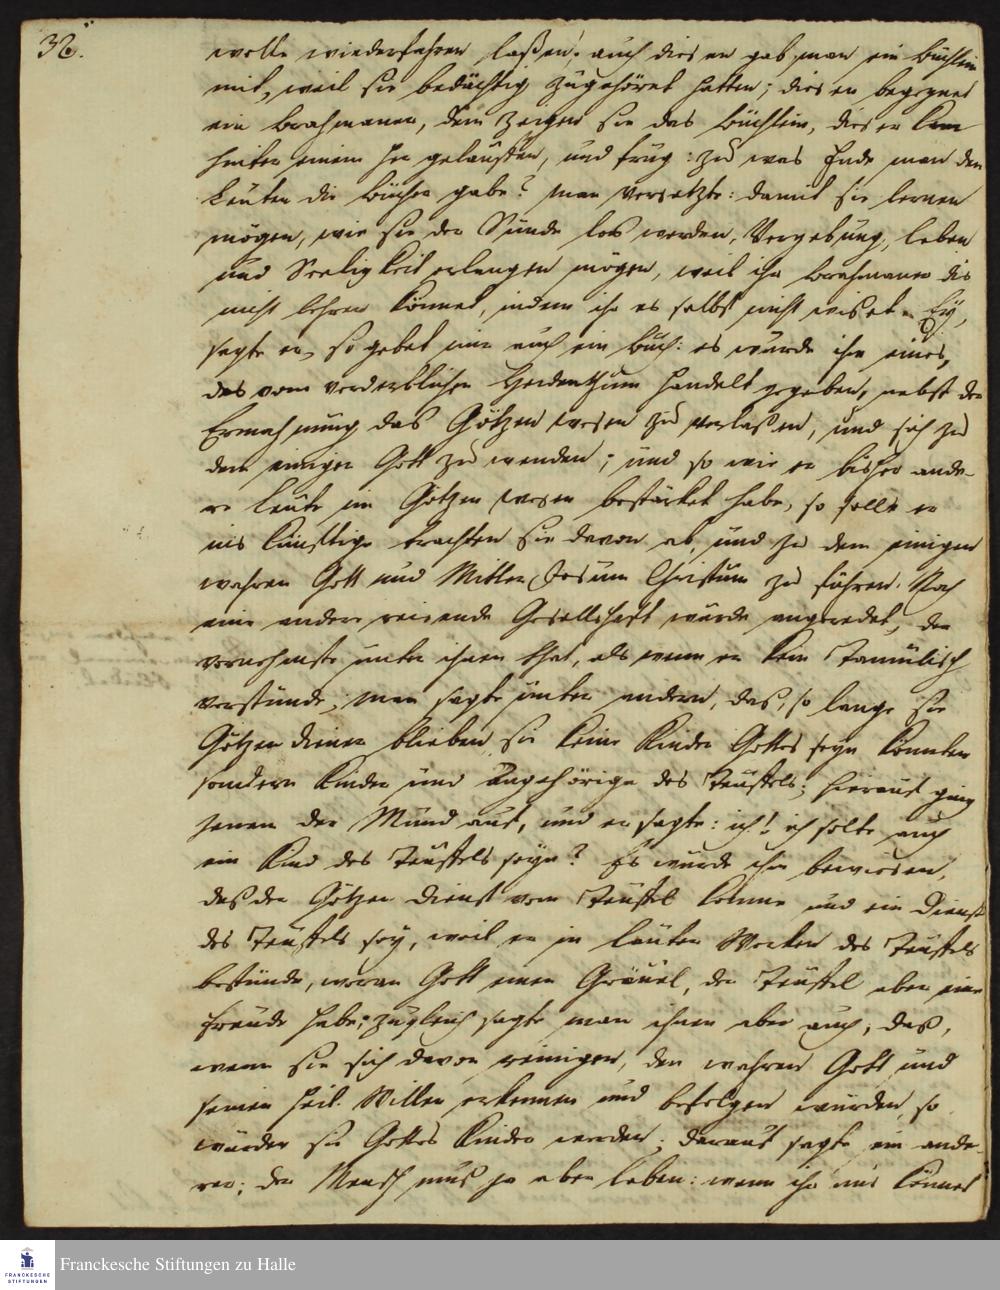 32.
wolle wiederfahren laßen; auch diesen gab man ein Büchlein
mit, weil sie bedächtig zugehöret hatten; diesen begegnet
ein Brahmaner, dem zeigen sie das Büchlein, dieser kam
hinter einem her gelauffen, und frug: zu was Ende man den
Leuten die Bücher gäbe? man versetzte: damit sie lernen
mögen, wie sie der Sünde los werden, Vergebung, Leben
und Seeligkeit erlangen mögen, weil ihr Brahmaner dis
nicht lehren könnet, indem ihr es selbst nicht wißet. Ey,
sagte er, so gebet mir auch ein Buch: es wurde ihm eines,
das vom verderblichen Heidenthum handelt gegeben, nebst der
Ermahnung das Götzen wesen zu verlaßen, und sich zu
dem einigen Gott zu wenden; und so wie er bisher ande-
re Leute im Götzen wesen bestärket habe, so solle er
ins künftige trachten sie davon ab, und zu dem einigen
wahren Gott und Mittler Jesum Christum zu führen. Noch
eine andere reisende Gesellschaft wurde angeredet, der
vornehmste unter ihnen that, als wenn er kein Tamulisch
verstünde; man sagte unter andern, daß, so lange sie
Götzen diener blieben, sie keine Kinder Gottes seyn könnten
sondern Kinder und Angehörige des Teuffels; hierauf ging
jenem der Mund auf, und er sagte: ich! ich solte auch
ein Kind des Teuffels seyn? Es wurde ihm bewiesen,
daß der Götzen dienst vom Teuffel komme und ein Dienst
des Teuffels sey, weil er in lauter Wercken des Teuffels
bestünde, woran Gott einen Gräuel, der Teuffel aber eine
Freude habe; zugleich sagte man ihnen aber auch, daß,
wenn sie sich davon reinigen, den wahren Gott und
seinen heil. Willen erkennen und befolgen würden, so
würden sie Gottes Kinder werden; darauf sagte ein ande-
rer: der Mensch muß ja aber leben: wenn ihr uns könnet
Franckesche Stiftungen zu Halle
FRANCKESCHE
STIFTUNGEN